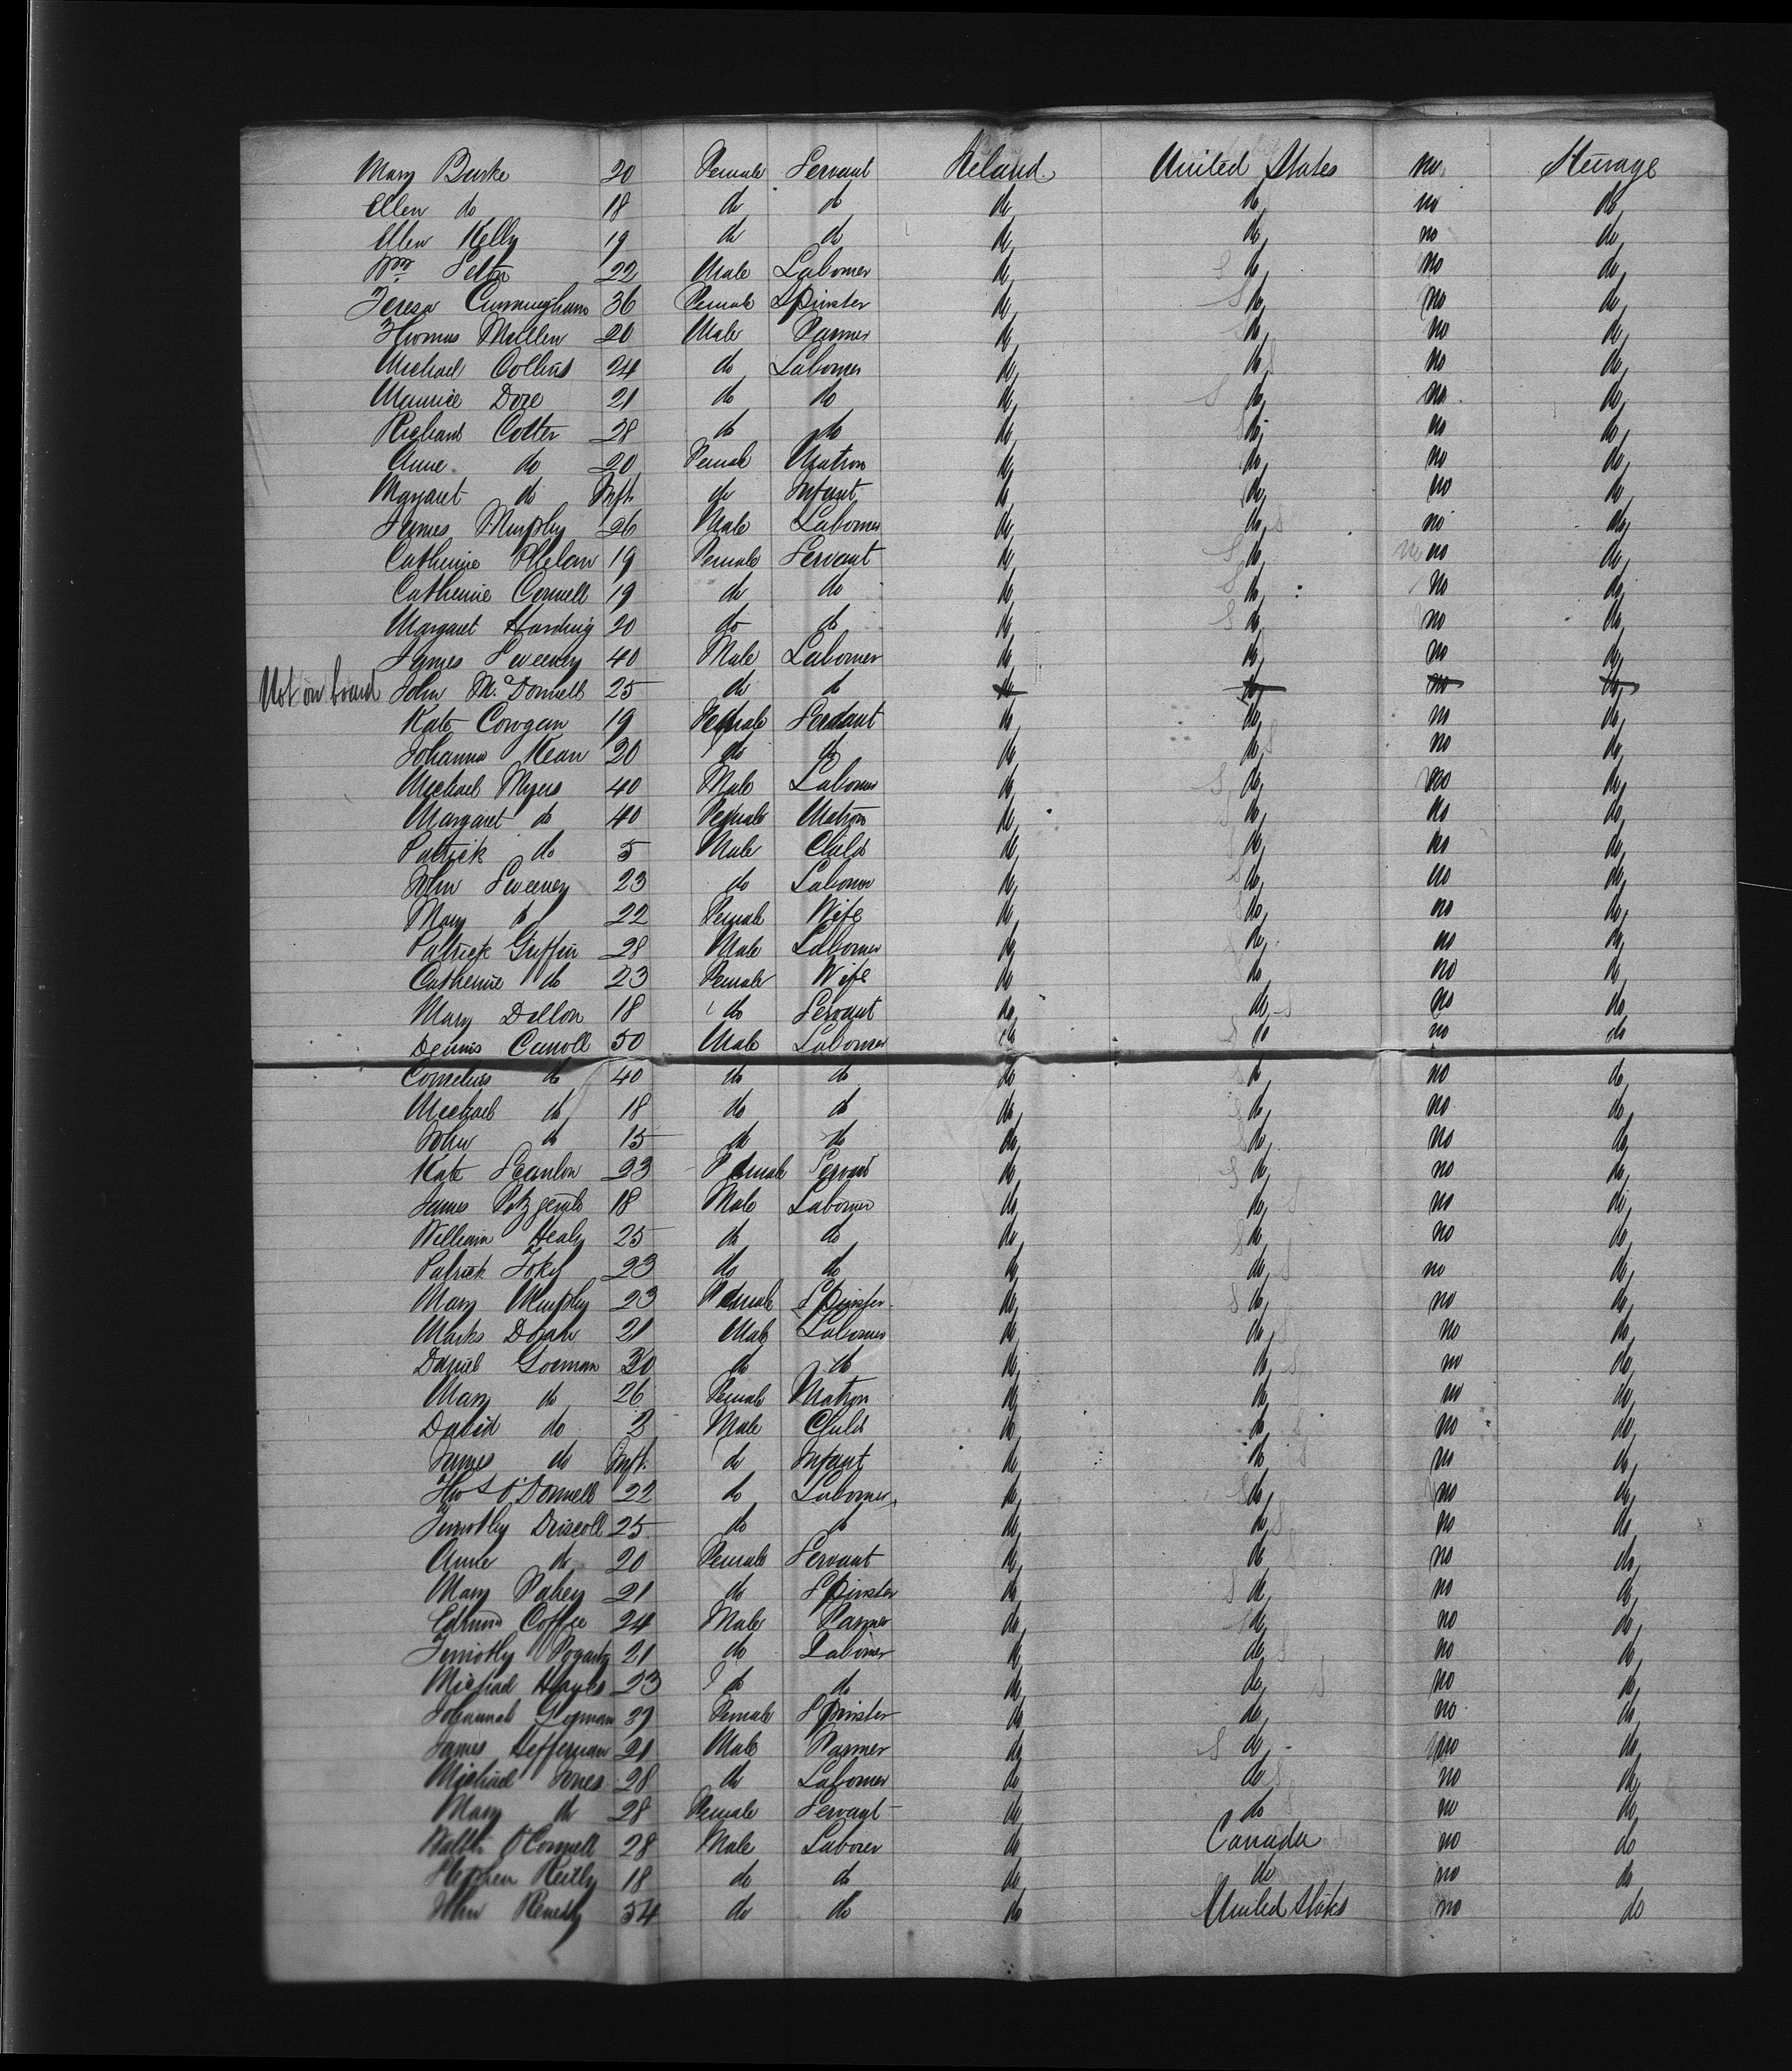 Mary Burke 20 Female Servant Ireland United States no Steerage
Ellen do 18 do do do do no do
Ellen Kelly 19 do do do do no do
Wm. 22 Male Laborer do do no do
Teresa Cunningham 36 Female Spinster do do no do
Thomas Mullen 20 Male Farmer do do no do
Michael Collins 24 do Laborer do do no do
Maurice Dore 21 do do do do no do
Richard Cotter 28 do do do do no do
Anne do 20 Female Matron do do no do
Margaret do Inft. do Infant do do no do
James Murphy 26 Male Laborer do do no do
Catherine Phelan 19 Female Servant do do no do
Catherine Connell 19 do do do do no do
Margaret Harding 20 do do do do no do
James Sweeney 40 Male Laborer do do no do
Not on board John McDonnell 25 do do do do no do
Kate Cowgan 19 Female Servant do do no do
Johanna Kean 20 do do do do no do
Michael Myers 40 Male Laborer do do no do
Margaret do 40 Female Matron do do no do
Patrick do 5 Male Child do do no do
John Sweeney 23 do Laborer do do no do
Mary do 22 Female Wife do do no do
Patrick Griffin 28 Male Laborer do do no do
Catherine do 23 Female Wife do do no do
Mary Dillon 18 do Servant do do no do
Dennis Carroll 50 Male Laborer do do no do
Cornelius do 40 do do do do no do
Michael do 18 do do do do no do
John do 15 do do do do no do
Kate Scanlon 23 Female Servant do do no do
James Fitzgerald 18 Male Laborer do do no do
William Healy 25 do do do do no do
Patrick 23 do do do do no do
Mary Murphy 23 Female Spinster do do no do
Marks Doran 21 Male Laborer do do no do
Daniel Gorman 30 do do do do no do
Mary do 26 Female Matron do do no do
David do Male Child do do no do
James do Inft. do Infant do do no do
Thos O'Donnell 22 do Laborer do do no do
Timothy Driscoll 25 do do do do no do
Anne do 20 Female Servant do do no do
Mary Fahey 21 do Spinster do do no do
Edmund Coffee 24 Male Farmer do do no do
Timothy Fogarty 21 do Laborer do do no do
Michael Hayes 23 do do do do no do
Johannah Gorman Female Spinster do do no do
James Heffernan 21 Male Farmer do do no do
Michael Jones 28 do Laborer do do no do
Mary do 28 Female Servant do do no do
Walter O'Connell 28 Male Laborer do Canada no do
Stephen Reilly 18 do do do do no do
John 34 do do do United States no do